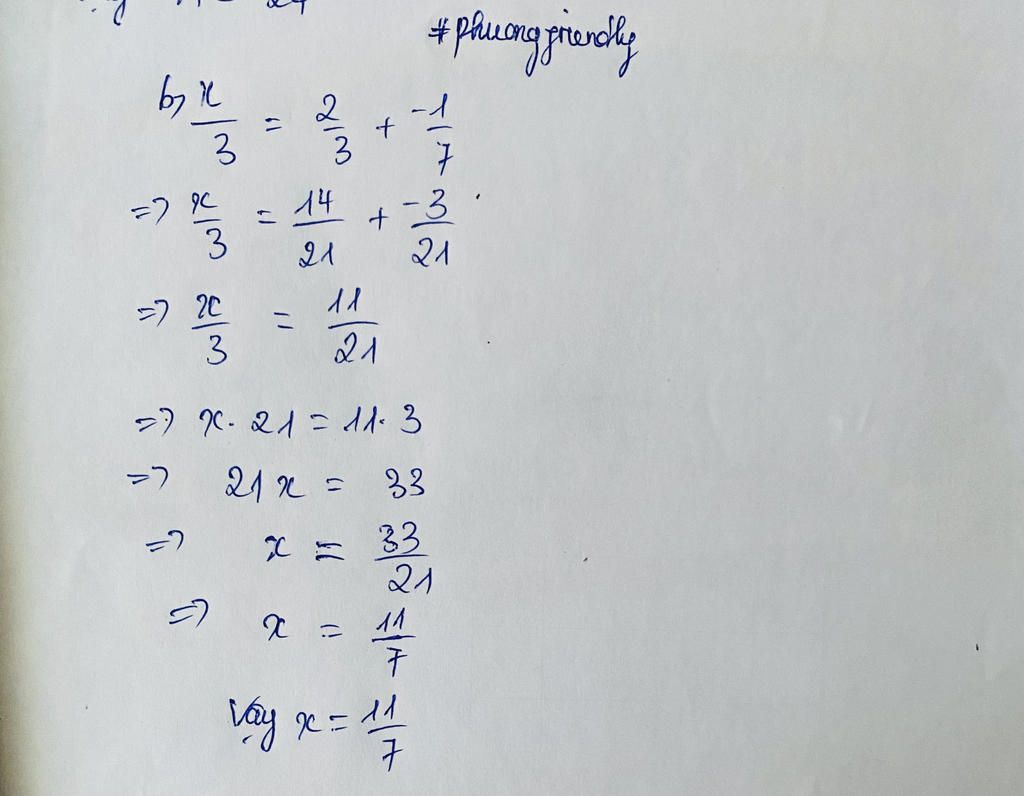 #phuongfriendly
b) x/3 = 2/3 + -1/7
=> x/3 = 14/21 + -3/21
=> x/3 = 11/21
=> x. 21 = 11. 3
=> 21x = 33
=> x = 33/21
=> x = 11/7
Vậy x = 11/7